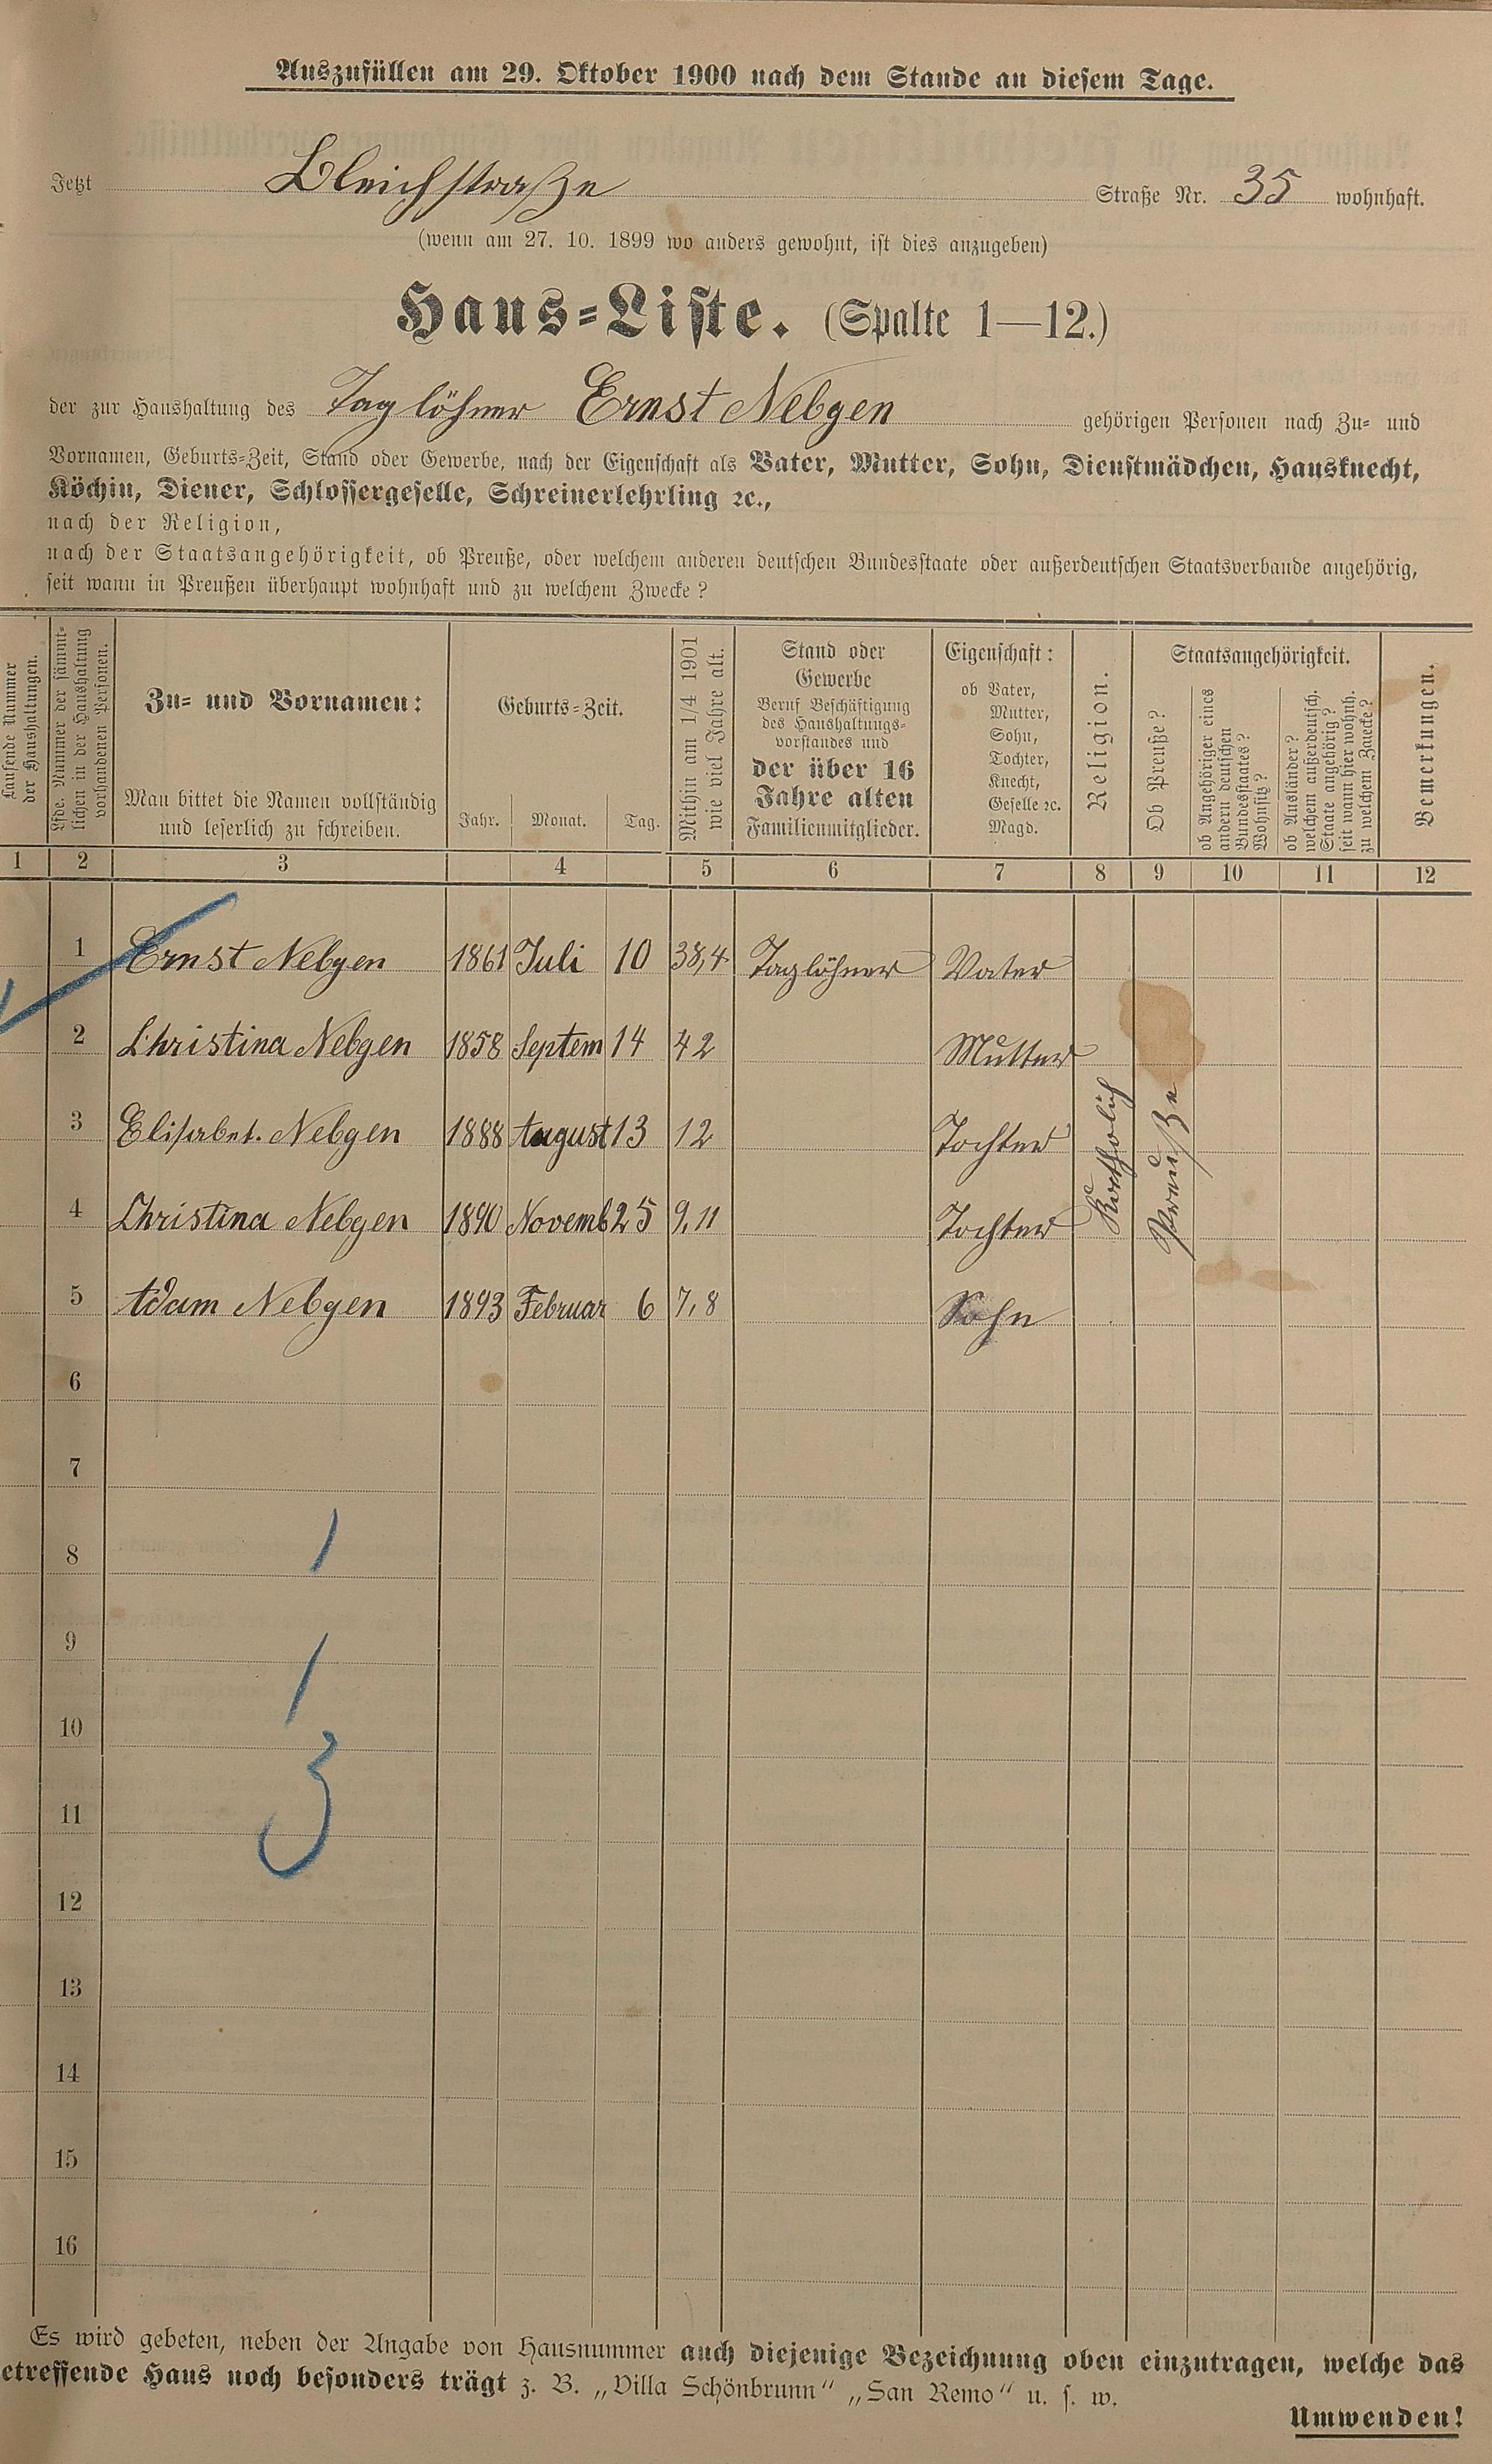 Auszufüllen am 29. Oktober 1900 nach dem Stande an diesem Tage.
Jetzt Bleichstraße Straße Nr. 35 wohnhaft.
(wenn am 27. 10. 1899 wo anders gewohnt, ist dies anzugeben)
Haus-Liste. (Spalte 1—12.)
der zur Haushaltung des Taglöhner Ernst Nebgen gehörigen Personen nach Zu- und
Vornamen, Geburts-Zeit, Stand oder Gewerbe, nach der Eigenschaft als Vater, Mutter, Sohn, Dienstmädchen, Hausknecht,
Köchin, Diener, Schlossergeselle, Schreinerlehrling ꝛc.,
nach der Religion,
nach der Staatsangehörigkeit, ob Preuße, oder welchem anderen deutschen Bundesstaate oder außerdeutschen Staatsverbande angehörig,
seit wann in Preußen überhaupt wohnhaft und zu welchem Zwecke?
Laufende Nummer
der Haushaltungen.
Lfde. Nummer der sämmt-
lichen in der Haushaltung
vorhandenen Personen.
Zu- und Vornamen:
Man bittet die Namen vollständig
und leserlich zu schreiben.
Geburts-Zeit.
Jahr. Monat. Tag.
Mithin am 1/4 1901
wie viel Jahre alt.
Stand oder
Gewerbe
Beruf Beschäftigung
des Haushaltungs-
vorstandes und
der über 16
Jahre alten
Familienmitglieder.
Eigenschaft:
ob Vater,
Mutter,
Sohn,
Tochter,
Knecht,
Geselle ꝛc.
Magd.
Religion.
Staatsangehörigkeit.
Ob Preuße?
ob Angehöriger eines
andern deutschen
Bundesstaates?
Wohnsitz?
ob Ausländer?
welchem außerdeutsch.
Staate angehörig?
seit wann hier wohnh.
zu welchem Zwecke?
Bemerkungen.
1 2 3 4 5 6 7 8 9 10 11 12
1 Ernst Nebgen 1861 Juli 10 38,4 Taglöhner Vater
2 Christina Nebgen 1858 Septem 14 42 Mutter
3 Elisabet. Nebgen 1888 August 13 12 Tochter
4 Christina Nebgen 1890 Novemb 25 9,11 Tochter
Katholich
Preuße
5 Adam Nebgen 1893 Februar 6 7,8 Sohn
6
7
8 1
9 1
10
11 3
12
13
14
15
16
Es wird gebeten, neben der Angabe von Hausnummer auch diejenige Bezeichnung oben einzutragen, welche das
etreffende Haus noch besonders trägt z. B. „Villa Schönbrunn“ „San Remo“ u. s. w.
Umwenden!